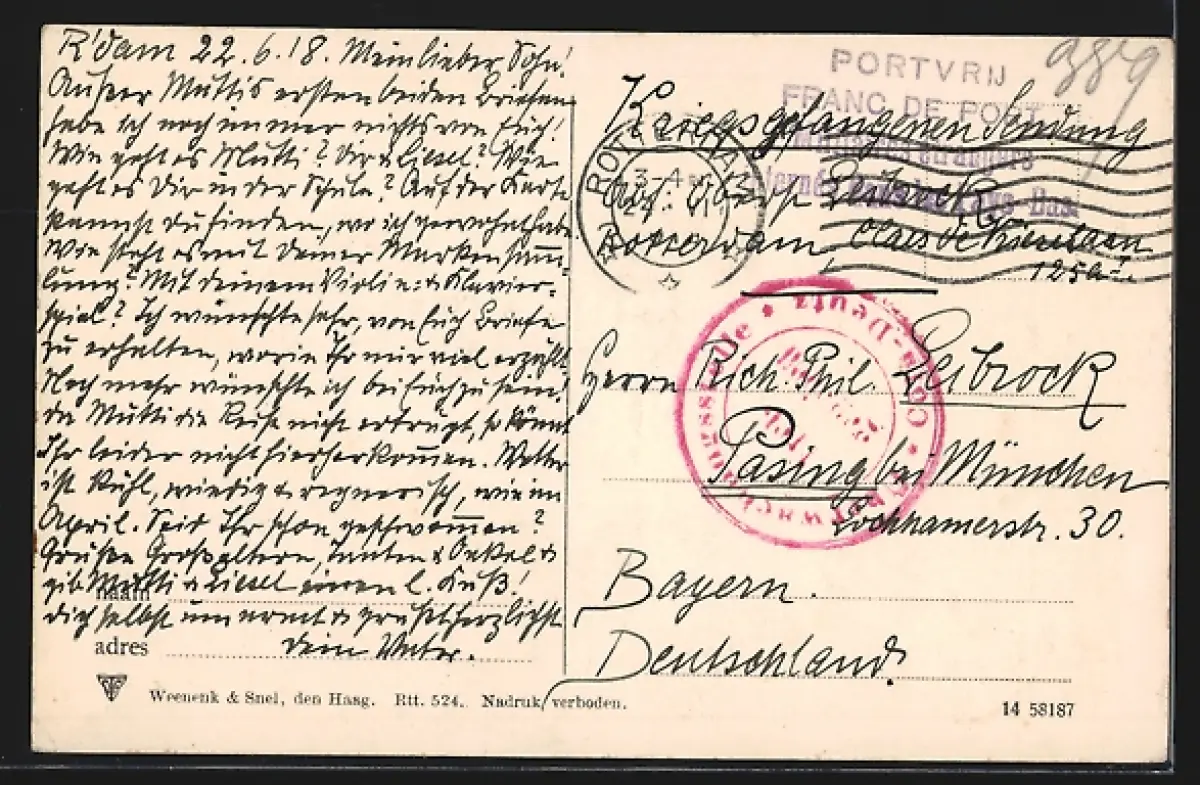 R'dam 22.6.18. Mein lieber Sohn!
Außer Muttis ersten beiden Briefen
habe ich noch immer nichts von Euch!
Wie geht es Mutti? Dir & Liesel? Wie
geht es Dir in der Schule? Auf der Karte
kannst du finden, wo ich gewohnt habe.
Wie steht es mit Deiner Markensamm-
lung? Mit deinem Violin- & Klavier-
spiel? Ich wünschte sehr, von Euch Briefe
zu erhalten, worin Ihr mir viel erzählt.
Noch mehr wünschte ich bei Euch zu sein!
da Mutti die Reise nicht erträgt, so könnt
Ihr leider nicht hierher kom̄en. Wetter
ist kühl, windig & regnerisch, wie im
April. Seid Ihr schon geschwom̄en?
Grüße Großeltern, Tanten & Onkel &
gib Mutti & Liesel einen l. Kuß!
Dich selbst umarmt & grüßt herzlichst
Dein Vater.
naam
adres
Weenenk & Snel, den Haag. Rtt. 524. Nadruk verboden.
14 58187
PORTVRIJ
FRANC DE PORT
389
Kriegsgefangenen Sendung
ROTTERDAM
3-4
Abs. Oberst Leibrock
Rotterdam Claes de Vrieselaan
125
Herrn Rich. Phil. Leibrock
Pasing bei München
Lochhamerstr. 30.
Bayern.
Deutschland.
Überwachungsstelle • Cöln-Deutz •